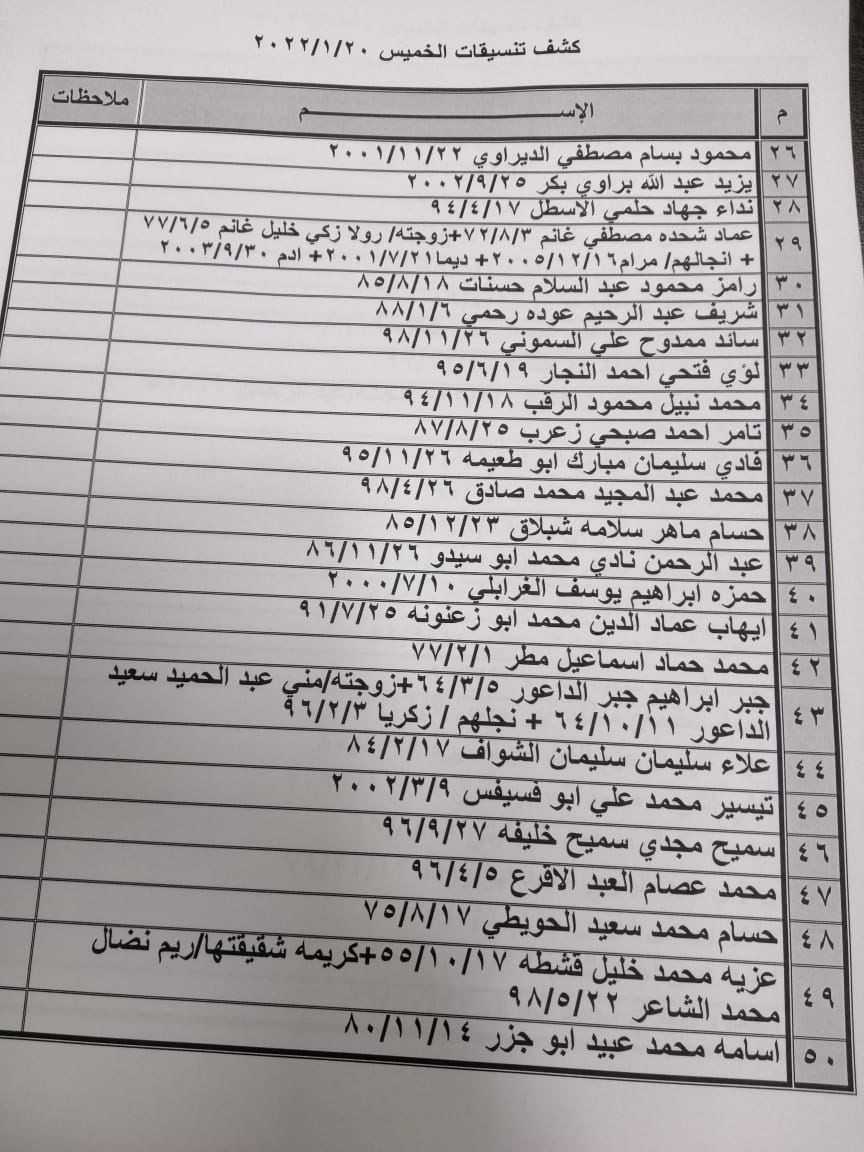 كشف تنسيقات الخميس ٢٠٢٢/١/٢٠
م الإســـــــــم ملاحظات
٢٦ محمود بسام مصطفي الديراوي ٢٠٠١/١١/٢٢
٢٧ يزيد عبد الله براوي بكر ٢٠٠٢/٩/٢٥
٢٨ نداء جهاد حلمي الاسطل ٩٤/٤/١٧
٢٩ عماد شحده مصطفي غانم ٧٢/٨/٣+زوجته/ رولا زكي خليل غانم ٧٧/٦/٥
+ انجالهم/ مرام٢٠٠٥/١٢/١٦+ ديما٢٠٠١/٧/٢١+ ادم ٢٠٠٣/٩/٣٠
٣٠ رامز محمود عبد السلام حسنات ٨٥/٨/١٨
٣١ شريف عبد الرحيم عوده رحمي ٨٨/١/٦
٣٢ ساند ممدوح علي السموني ٩٨/١١/٢٦
٣٣ لؤي فتحي احمد النجار ٩٥/٦/١٩
٣٤ محمد نبيل محمود الرقب ٩٤/١١/١٨
٣٥ تامر احمد صبحي زعرب ٨٧/٨/٢٥
٣٦ فادي سليمان مبارك ابو طعيمه ٩٥/١١/٢٦
٣٧ محمد عبد المجيد محمد صادق ٩٨/٤/٢٦
٣٨ حسام ماهر سلامه شبلاق ٨٥/١٢/٢٣
٣٩ عبد الرحمن نادي محمد ابو سيدو ٨٦/١١/٢٦
٤٠ حمزه ابراهيم يوسف الغرابلي ٢٠٠٠/٧/١٠
٤١ ايهاب عماد الدين محمد ابو زعنونه ٩١/٧/٢٥
٤٢ محمد حماد اسماعيل مطر ٧٧/٢/١
٤٣ جبر ابراهيم جبر الداعور ٦٤/٣/٥+زوجته/مني عبد الحميد سعيد
الداعور ٦٤/١٠/١١ + نجلهم / زكريا ٩٦/٢/٣
٤٤ علاء سليمان سليمان الشواف ٨٤/٢/١٧
٤٥ تيسير محمد علي ابو فسيفس ٢٠٠٢/٣/٩
٤٦ سميح مجدي سميح خليفه ٩٦/٩/٢٧
٤٧ محمد عصام العبد الاقرع ٩٦/٤/٥
٤٨ حسام محمد سعيد الحويطي ٧٥/٨/١٧
٤٩ عزيه محمد خليل قشطه ٥٥/١٠/١٧+كريمه شقيقتها/ريم نضال
محمد الشاعر ٩٨/٥/٢٢
٥٠ اسامه محمد عبيد ابو جزر ٨٠/١١/١٤